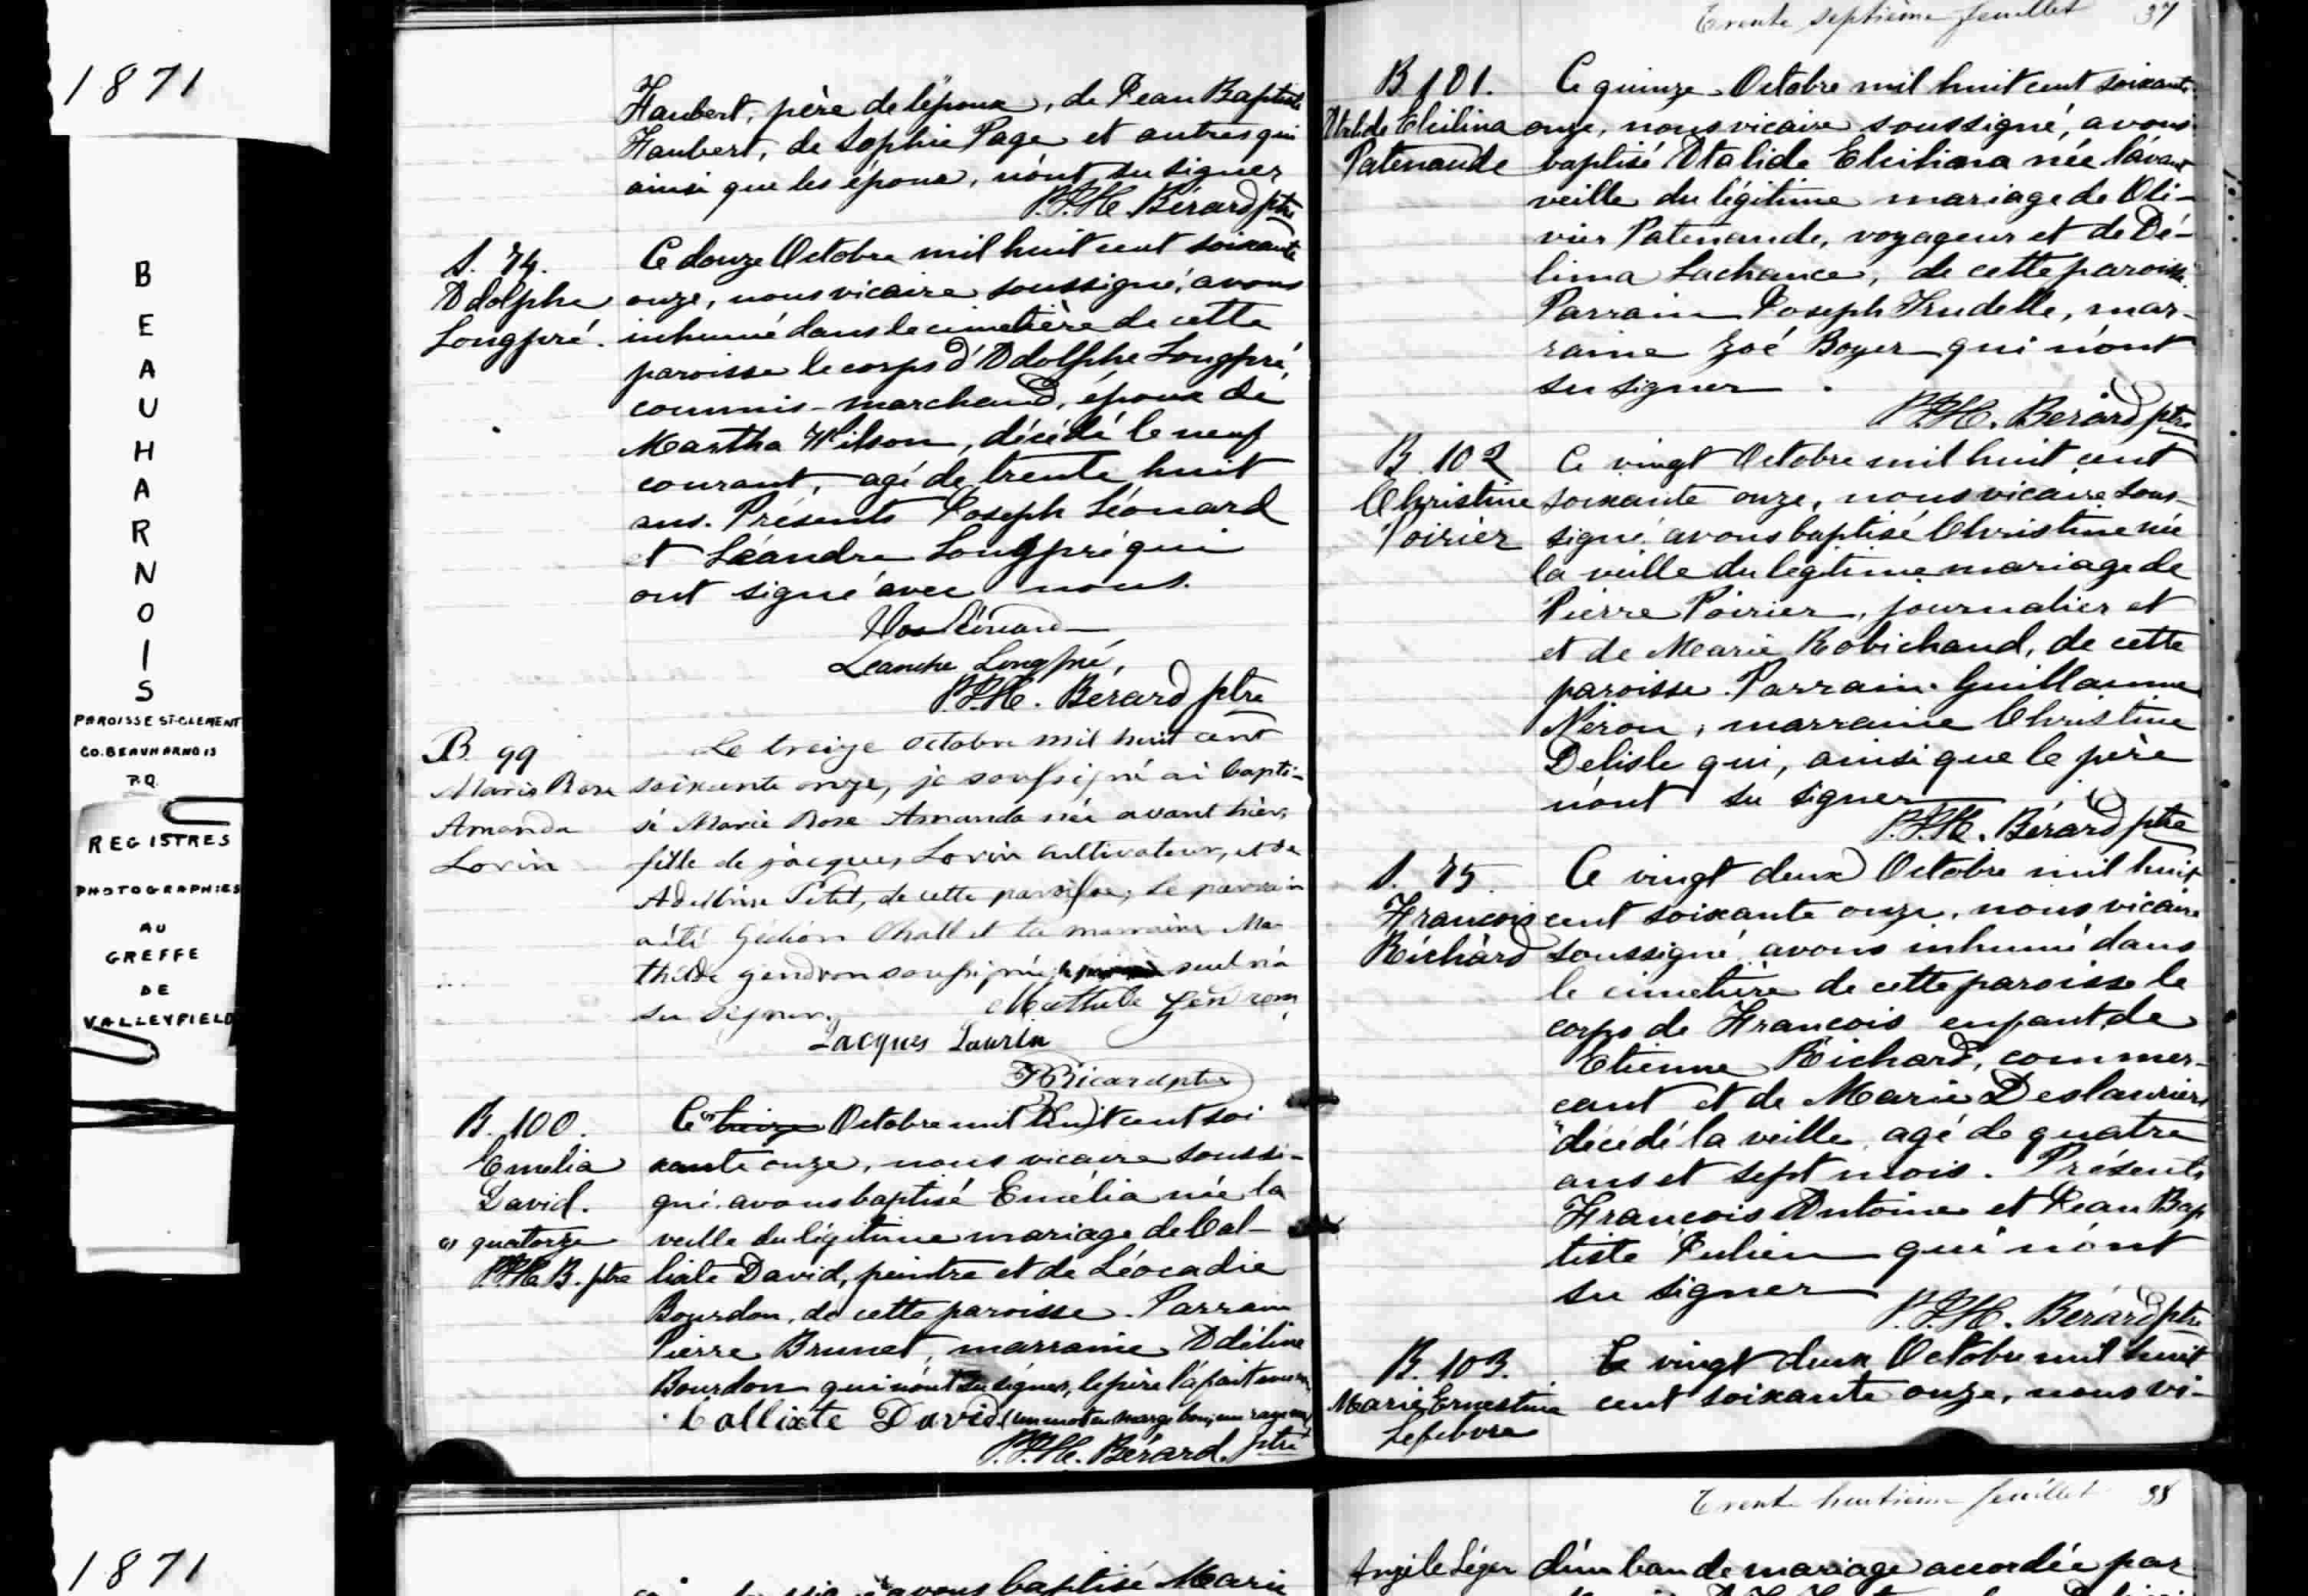 1871
BEAUHARNOIS
PAROISSE ST-CLEMENT
CO. BEAUHARNOIS
P.Q.
REGISTRES
PHOTOGRAPHIES
AU
GREFFE
DE
VALLEYFIELD
1871
Haubert, père de l'époux, de Jean Baptiste
Haubert, de Sophie Page et autres qui
ainsi que les époux, n'ont su signer
Bérard ptre
S. 74.
Adolphe
Longpré.
Ce douze Octobre mil huit cent soixante
onze, nous vicaire soussigné, avons
inhumé dans le cimetière de cette
paroisse le corps d'Adolphe Longpré,
commis-marchand, époux de
Martha Wilson, décédé le neuf
courant, agé de trente huit
ans. Présents Joseph Léonard
et Léandre Longpré qui
ont signé avec nous.
Jos Léonard
Leandre Longpré,
Bérard ptre
B. 99
Marie Rose
Amanda
Lorin
Le treize octobre mil huit cent
soixante onze, je soussigné ai bapti-
sé Marie Rose Amanda née avant hier,
fille de jacques Lorin cultivateur, et de
Adeline Petit, de cette paroisse; Le parrain
a été Gédéon et la marraine Ma-
thilde gendron soussignée, seul n'a
su signer.
Mathilde Gendron
Jacques Laurin
Ricard ptre
B. 100.
Emélia
David.
(1) quatorze
B. ptre
Ce (1) treize Octobre mil huit cent soi
xante onze, nous vicaire soussi-
gné avons baptisé Emélia née la
veille du légitime mariage de Cal-
lixte David, peintre et de Léocadie
Bourdon, de cette paroisse. Parrain
Pierre Brunet, marraine Adéline
Bourdon qui n'ont su signer, le père l'a fait avec
Callixte David (un mot en marge bon, un rayé
Bérard. ptre
Trente septième feuillet 37
B 101.
Atalide Ehilina
Patenaude
Ce quinze Octobre mil huit cent soixante
onze, nous vicaire soussigné, avons
baptisé Atalide Ehilina née l'avant
veille du légitime mariage de Oli-
vier Patenaude, voyageur et de Dé-
lima Lachance, de cette paroisse.
Parrain Joseph Trudelle, mar-
raine Zoé Boyer qui n'ont
su signer.
Bérard ptre
B. 102
Christine
Poirier
Ce vingt Octobre mil huit cent
soixante onze, nous vicaire sous-
signé avons baptisé Christine née
la veille du légitime mariage de
Pierre Poirier, journalier et
et de Marie Robichaud, de cette
paroisse. Parrain Guillaume
Néron, marraine Christine
Delisle qui, ainsi que le père
n'ont su signer
Bérard ptre
S. 75.
Francois
Richard
Ce vingt deux Octobre mil huit
cent soixante onze, nous vicaire
soussigné avons inhumé dans
le cimetière de cette paroisse le
corps de Francois enfant de
Etienne Richard, commer-
cant et de Marie Deslauriers
décédé la veille agé de quatre
ans et sept mois. Présents
Francois Antoine et Jean Bap
tiste Julien qui n'ont
su signer
Bérard ptre
B. 103.
Marie Ernestine
Lefebvre
Ce vingt deux Octobre mil huit
cent soixante onze, nous vi-
avons baptisé Marie
Trente huitième feuillet 38
Angèle Léger
d'un ban de mariage accordée par